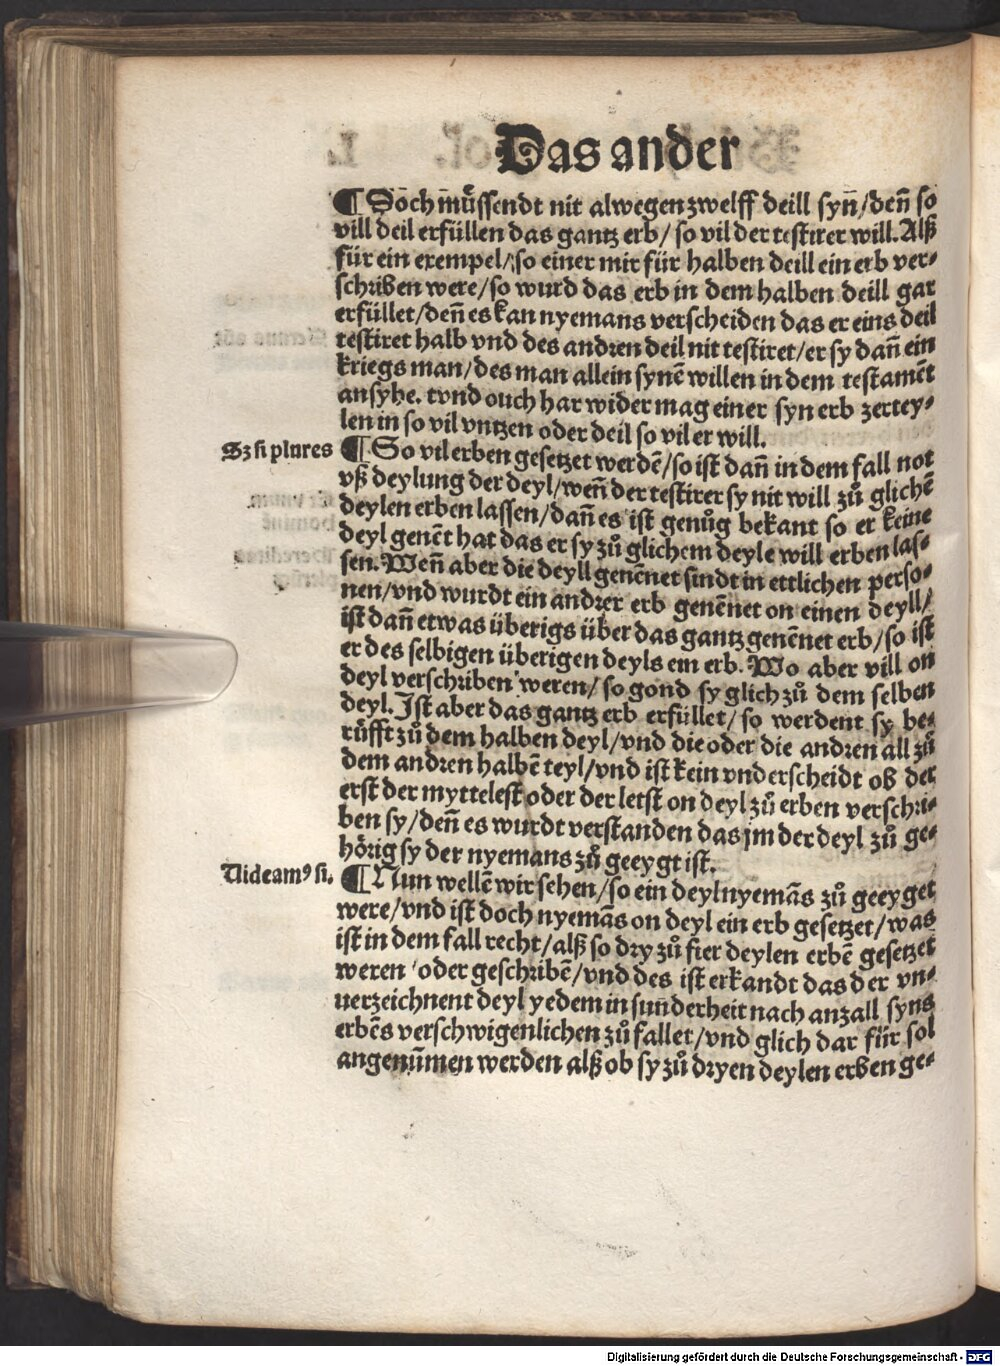 Das ander
¶ Doch müssendt nit alwegen zwelff deill syn̄/den̄ so
vill deil erfüllen das gantz erb/ so vil der testirer will. Alß
für ein exempel/ so einer mir für halben deill ein erb ver⸗
schriben were/so wurd das erb in dem halben deill gar
erfüllet/den̄ es kan nyemans verscheiden das er eins deil
testiret halb vnd des andren deil nit testiret/er sy dan̄ ein
kriegs man/des man allein synē willen in dem testamēt
ansyhe. vnd ouch har wider mag einer syn erb zertey⸗
len in so vil vntzen oder deil so vil er will.
Sz si plures
¶ So vil erben gesetzet werdē/so ist dan̄ in dem fall not
vß deylung der deyl/wen̄ der testirer sy nit will zů glichē
deylen erben lassen/dan̄ es ist genůg bekant so er keine
deyl genēt hat das er sy zů glichem deyle will erben las⸗
sen. Wen̄ aber die deyll genēnet sindt in ettlichen perso⸗
nen/vnd wurdt ein andrer erb genēnet on einen deyll/
ist dan̄ etwas überigs über das gantz genēnet erb/so ist
er des selbigen überigen deyls ein erb. Wo aber vill on
deyl verschriben weren/ so gond sy glich zů dem selben
deyl. Ist aber das gantz erb erfüllet/ so werdent sy be⸗
rüfft zů dem halben deyl/vnd die oder die andren all zů
dem andren halbē teyl/vnd ist kein vnderscheidt ob der
erst der myttelest oder der letst on deyl zů erben verschri⸗
ben sy/den̄ es wurdt verstanden das jm der deyl zů ge⸗
hörig sy der nyemans zů geeygt ist.
Uideamꝰ si.
¶ Nun wellē wir sehen/so ein deyl nyemās zů geeyget
were/vnd ist doch nyemās on deyl ein erb gesetzet/was
ist in dem fall recht/alß so dry zů fier deylen erbē gesetzet
weren oder geschribē/vnd des ist erkandt das der vn⸗
uerzeichnent deyl yedem in sunderheit nach anzall syns
erbēs verschwigenlichen zů fallet/vnd glich dar für sol
angenūmen werden alß ob sy zů dryen deylen erben ge⸗
Digitalisierung gefördert durch die Deutsche Forschungsgemeinschaft - DFG